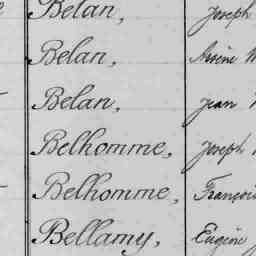 Belan, Joseph
Belan,
Belan, Jean
Belhomme, Joseph
Belhomme, François
Bellamy, Eugène